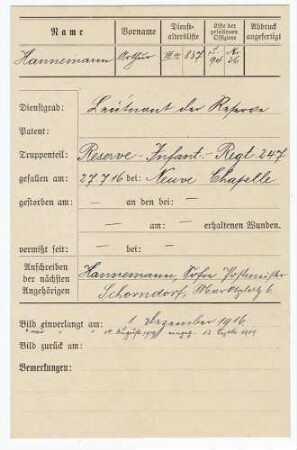 Name Vorname Dienst- altersliste Liste der gefallenen Offiziere Abdruck angefertigt
Hannemann Arthur IIIa 837 S. 94 Nr. 26
Dienstgrad: Leutnant der Reserve
Patent:
Truppenteil: Reserve-Infant.-Regt 247
gefallen am: 27 7 16 bei: Neuve Chapelle
gestorben am: — an den bei: —
— am: — erhaltenen Wunden.
vermißt seit: — bei: —
Anschreiben der nächsten Angehörigen Hannemann, Postmeister
Schorndorf, Marktplatz 6
Bild einverlangt am: 1. Dezember 1916.
August 1919
Bild zurück am:
Bemerkungen: